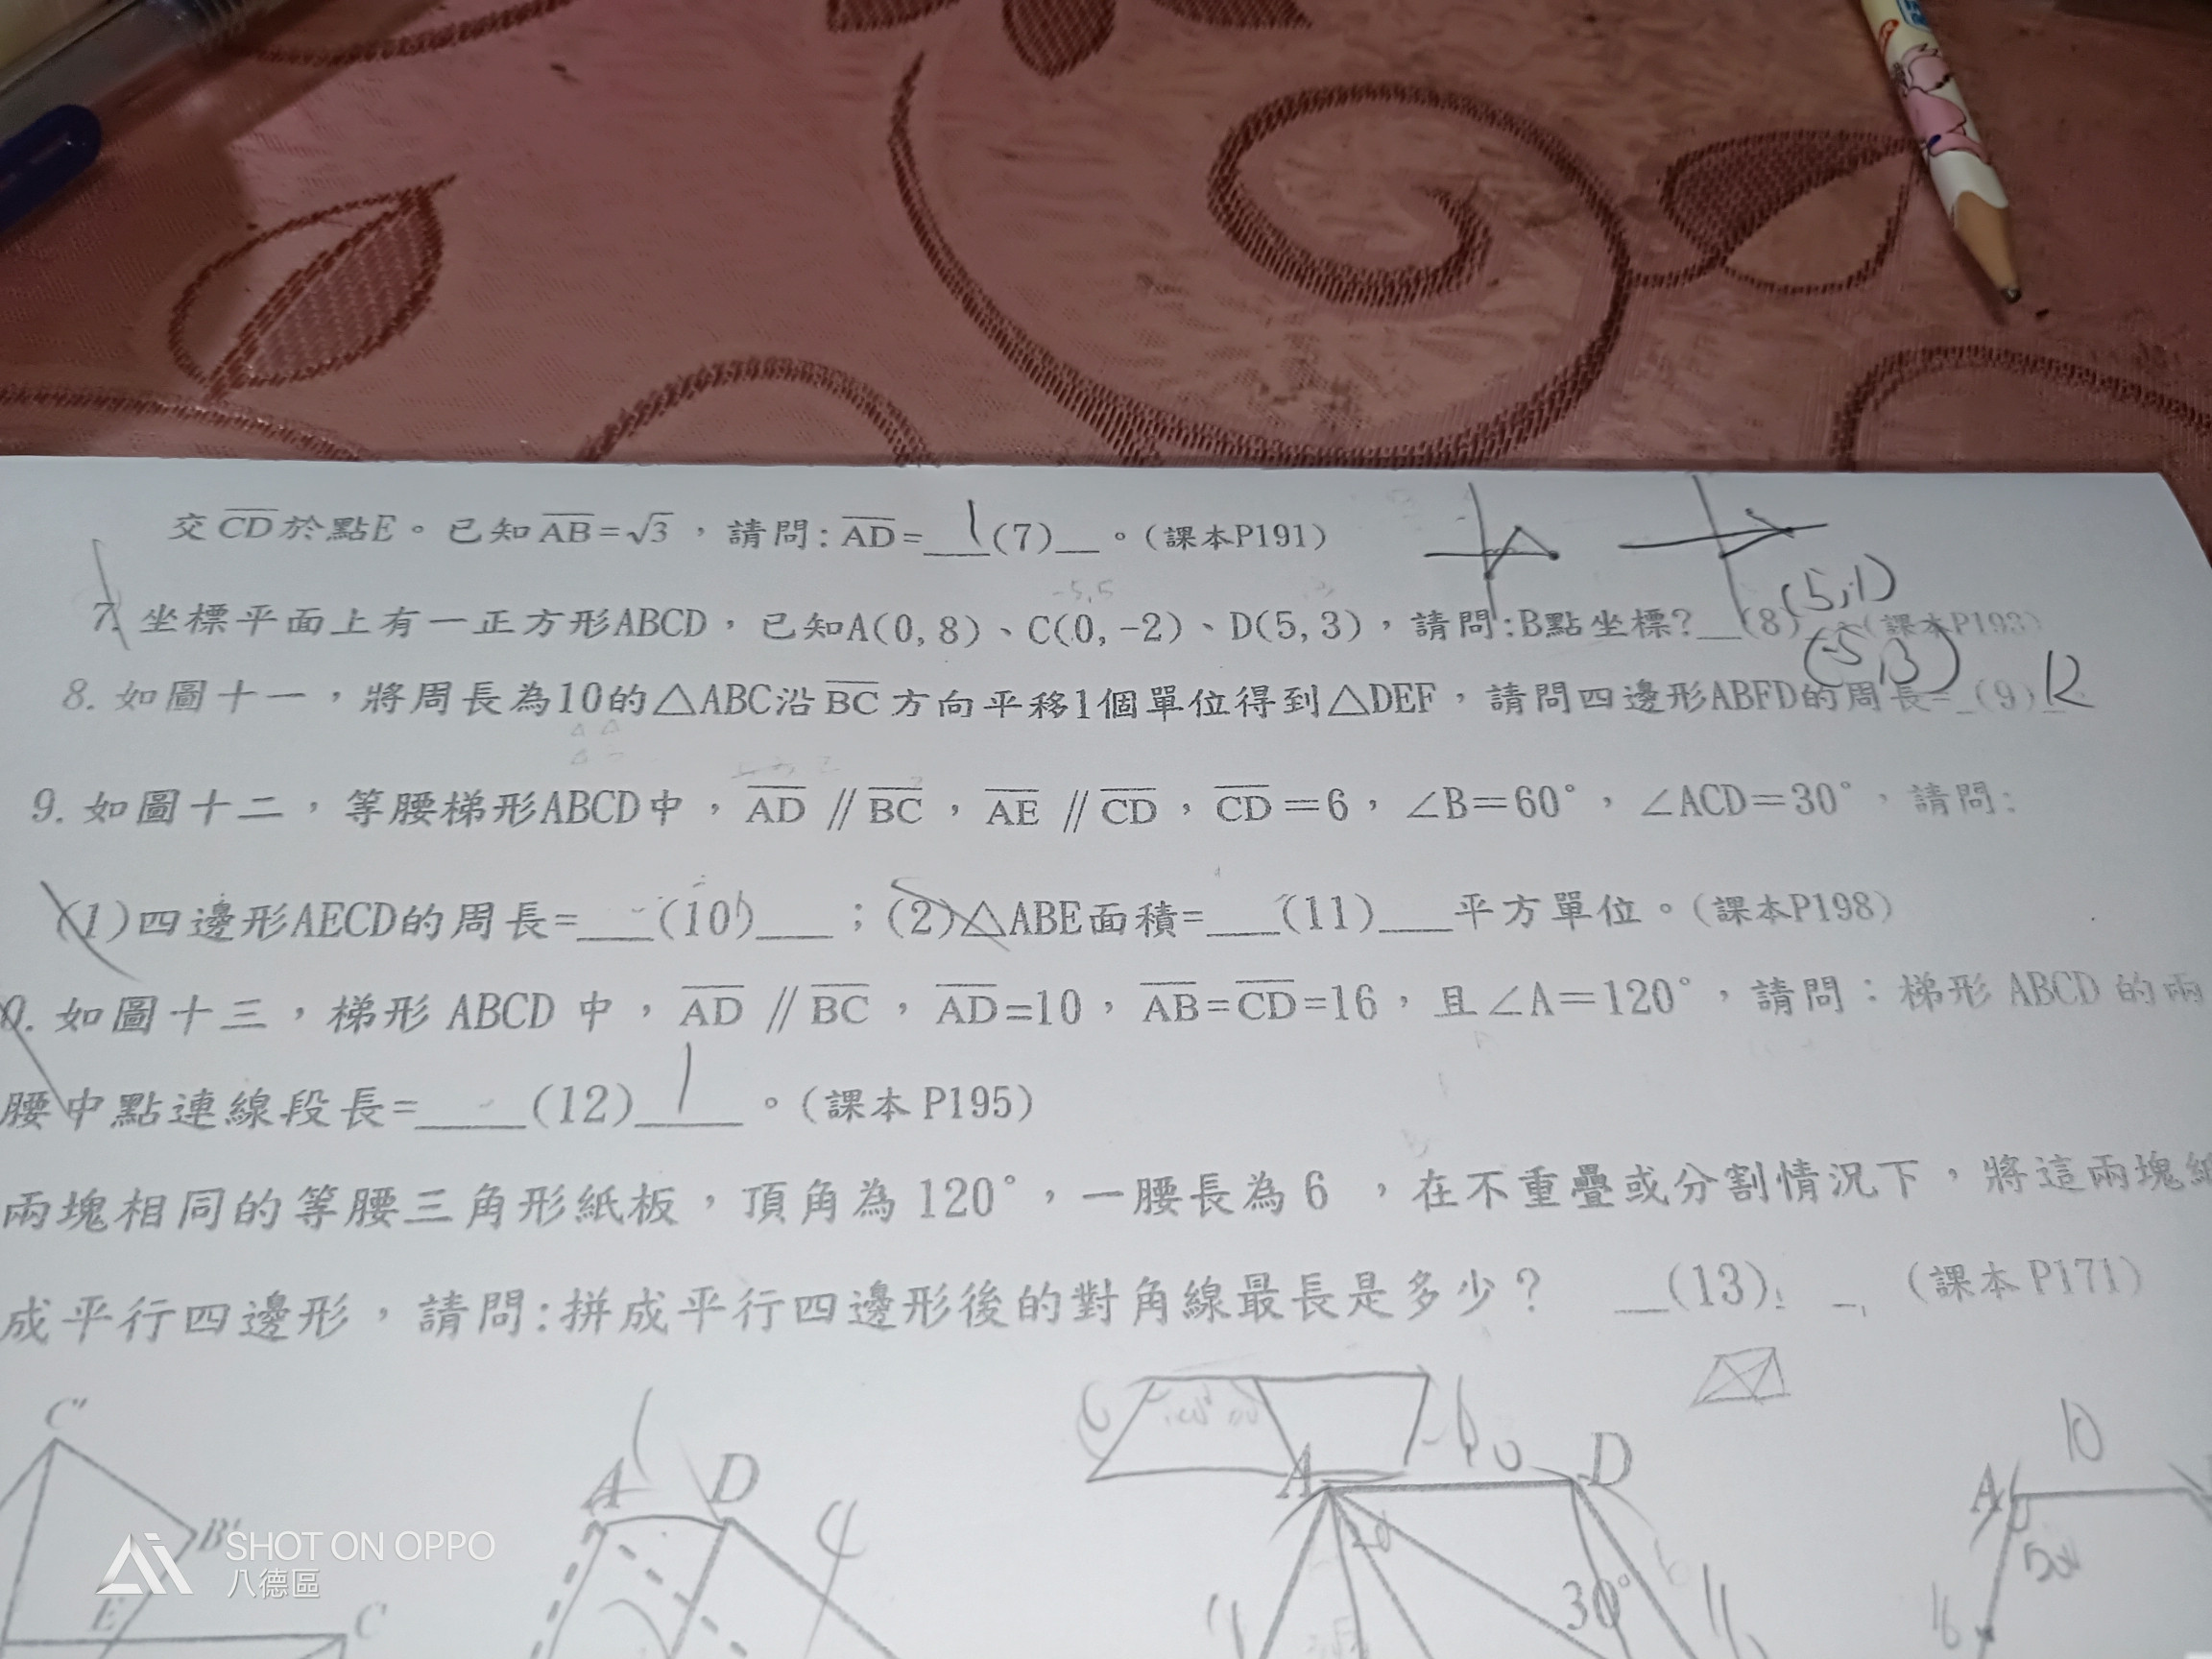 交CD於點E。已知AB=√3，請問:AD=___(7)__。(課本P191)
7. 坐標平面上有一正方形ABCD，已知A(0,8)、C(0,-2)、D(5,3)，請問:B點坐標?__(8)__(課本P193)
(5,1)
(-5,3)
8. 如圖十一，將周長為10的△ABC沿BC方向平移1個單位得到△DEF，請問四邊形ABFD的周長=_(9)_12
9. 如圖十二，等腰梯形ABCD中，AD∥BC，AE∥CD，CD=6，∠B=60°，∠ACD=30°，請問:
(1)四邊形AECD的周長=___(10)___；(2)△ABE面積=___(11)___平方單位。(課本P198)
0. 如圖十三，梯形 ABCD 中，AD∥BC，AD=10，AB=CD=16，且∠A=120°，請問：梯形 ABCD 的兩
腰中點連線段長=____(12)____。(課本 P195)
兩塊相同的等腰三角形紙板，頂角為 120°，一腰長為 6 ，在不重疊或分割情況下，將這兩塊紙
成平行四邊形，請問:拼成平行四邊形後的對角線最長是多少？ __(13)__ (課本 P171)
C"
B'
E
C
A D
4
A D
30°
10
A
16
SHOT ON OPPO
八德區